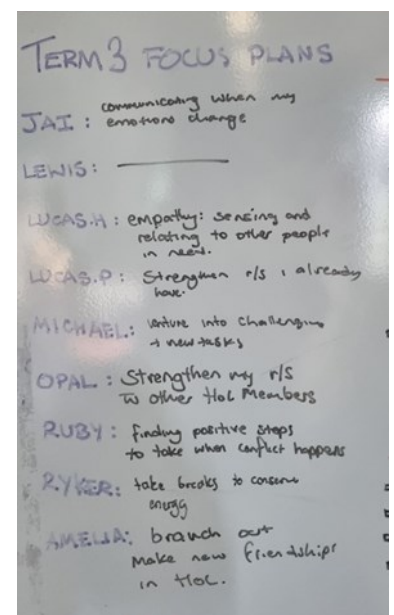 TERM 3 FOCUS PLANS
communicating when my
JAI : emotions change
LEWIS:
LUCAS.H : empathy: sensing and
relating to other people
in need.
LUCAS.P : Strengthen r/s i already
have.
MICHAEL: venture into challenging
+ new tasks
OPAL : Strengthen my r/s
to other HoL Members
RUBY : finding positive steps
to take when conflict happens
RYKER: take breaks to conserve
energy
AMELIA: branch out
Make new friendships
in HOL.